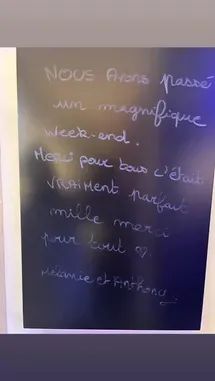 NOUS Avons passé
un magnifique
week-end.
Merci pour tous c'était
VRAIMENT parfait
mille merci
pour tout ♡.
Mélanie et Anthony